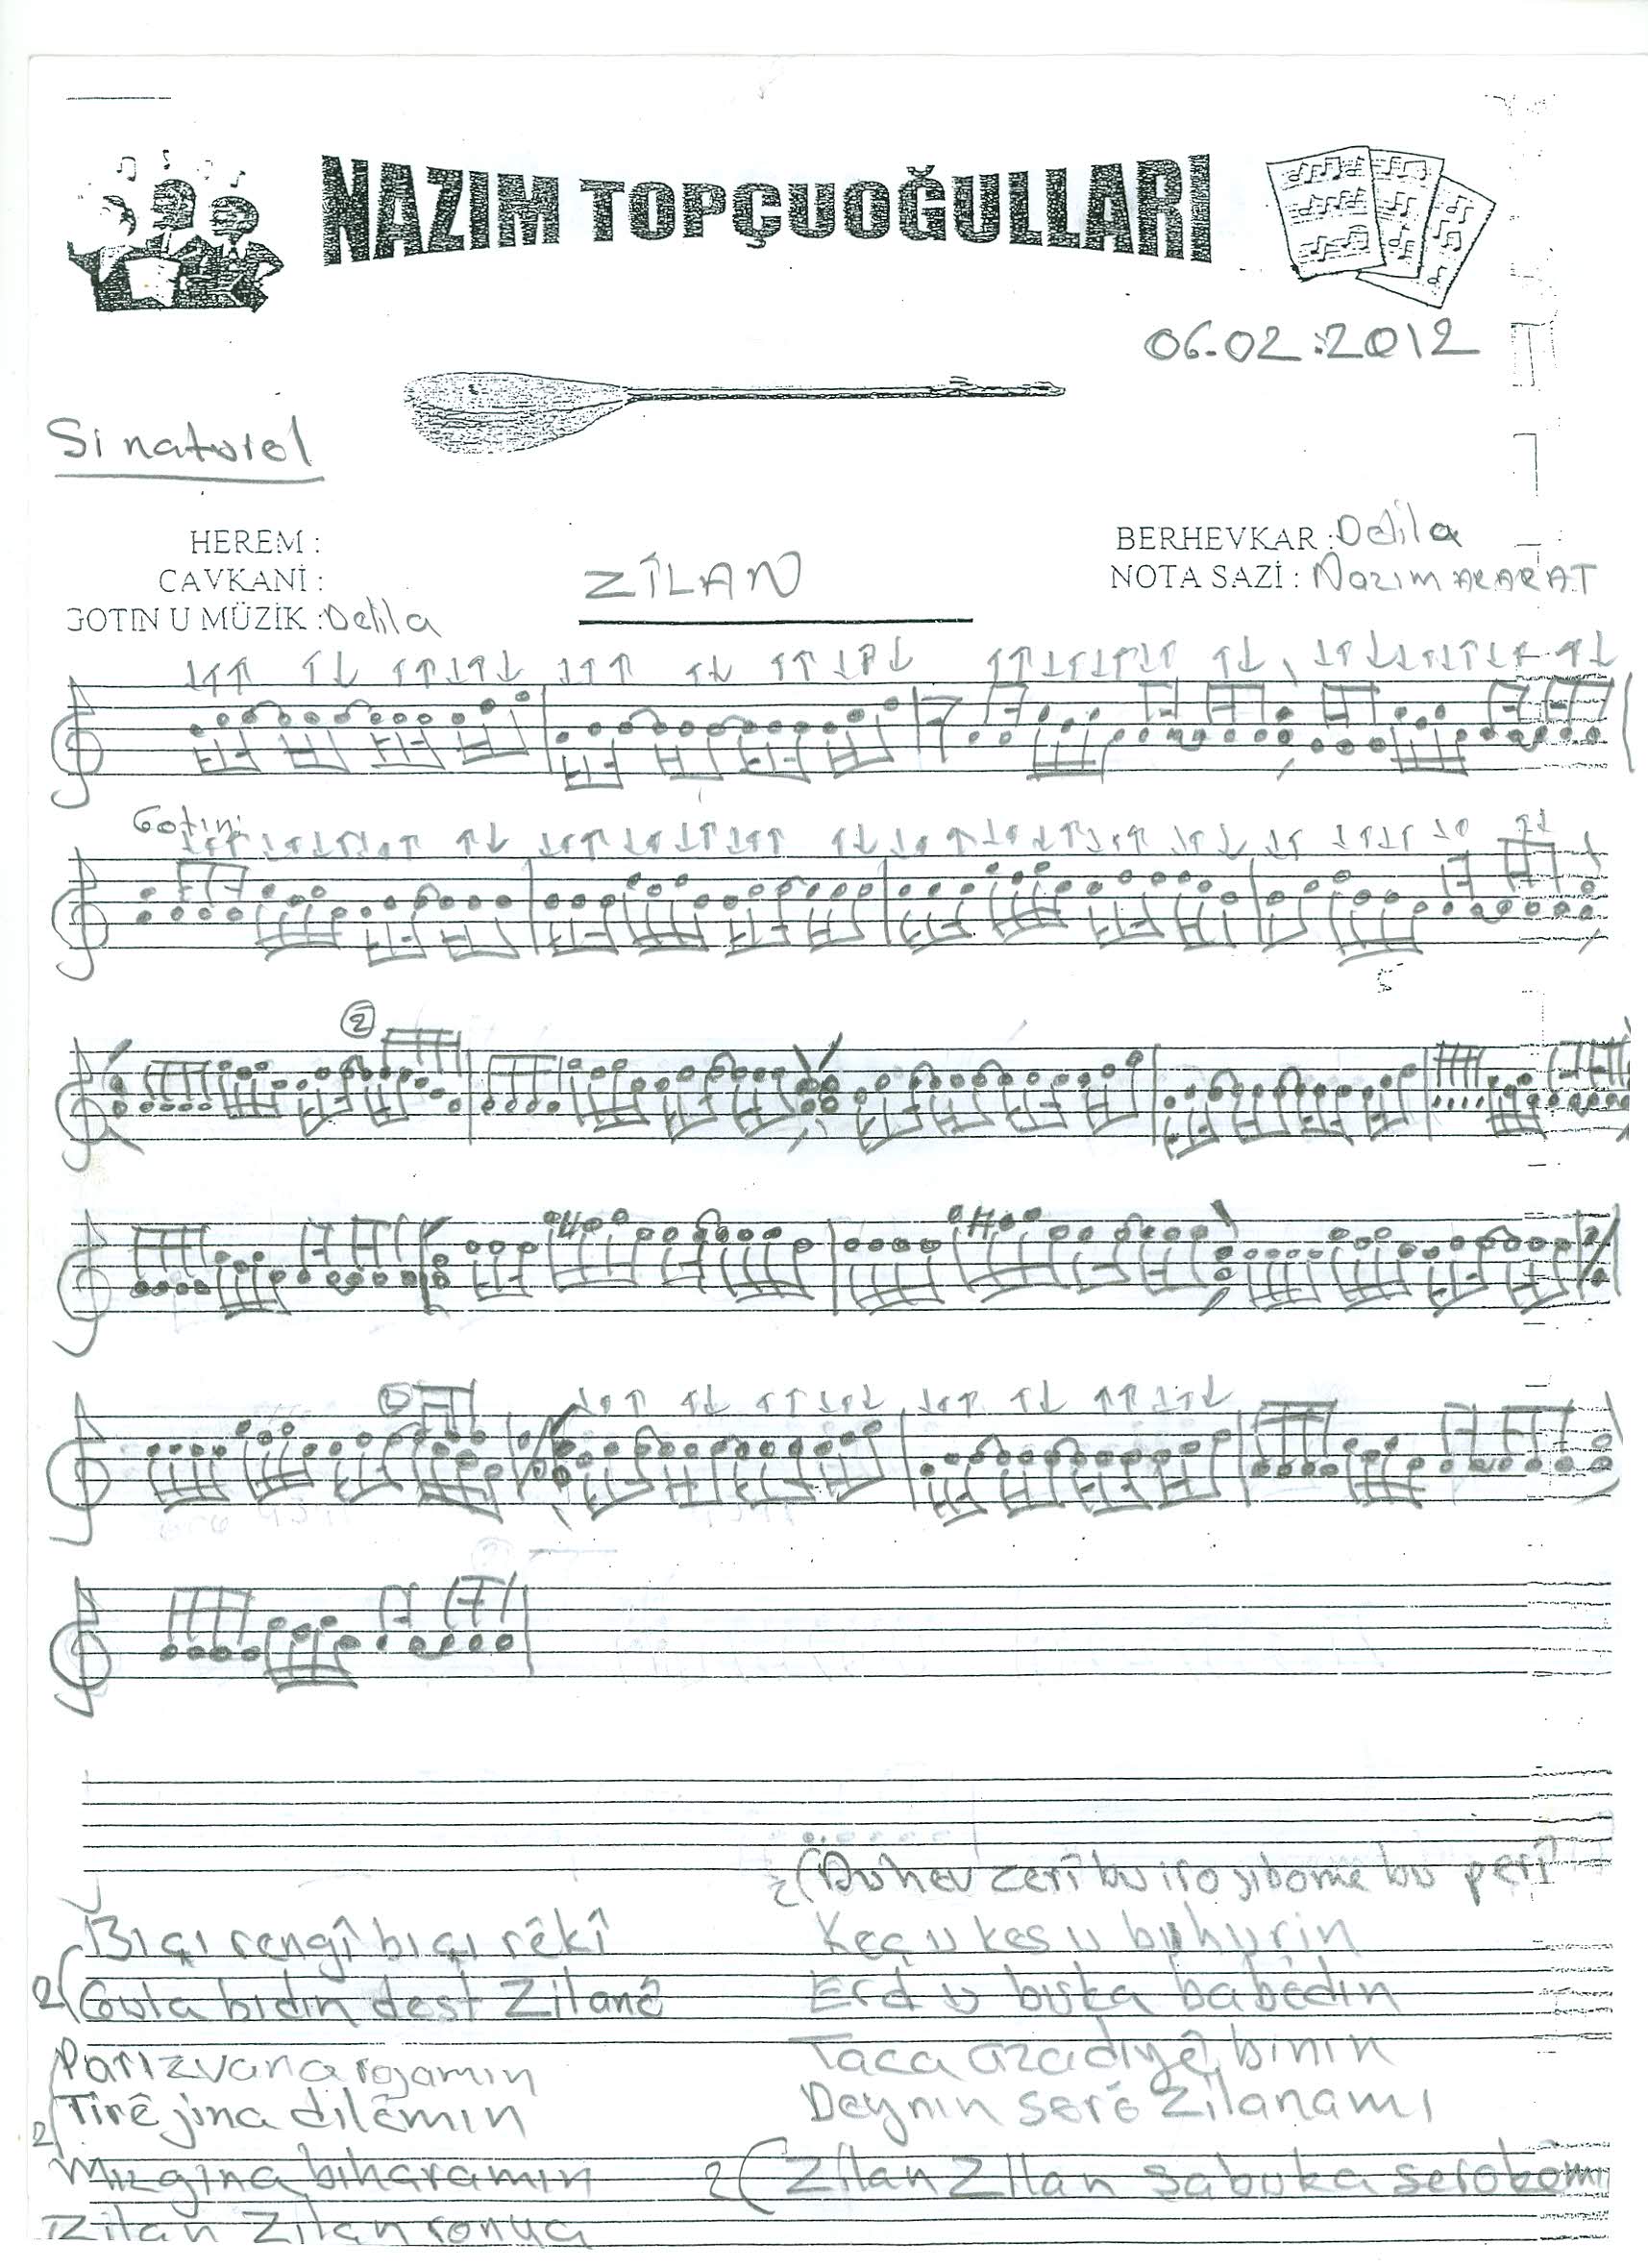 NAZIM TOPÇUOĞULLARI
06.02.2012
Si naturel
HEREM :
CAVKANİ :
GOTIN U MÜZİK : Delila
ZÎLAN
BERHEVKAR : Delila
NOTA SAZİ : Nazım ARARAT
Gotın:
2
5
Bıçı rengî bıçı rêkî
2( Gula bıdın dest Zilanê
Parızvana rojamın
2( Tirêjina dılêmın
Mızgina bıharamın
Zilan Zilan
2( zerî bu iro jıbome bu perî
Keç u kes u buhurin
Erd u buka babêdın
Taca azadiyê bının
Deynın serê Zilanamı
2( Zilan Zilan sabuka serokêmı